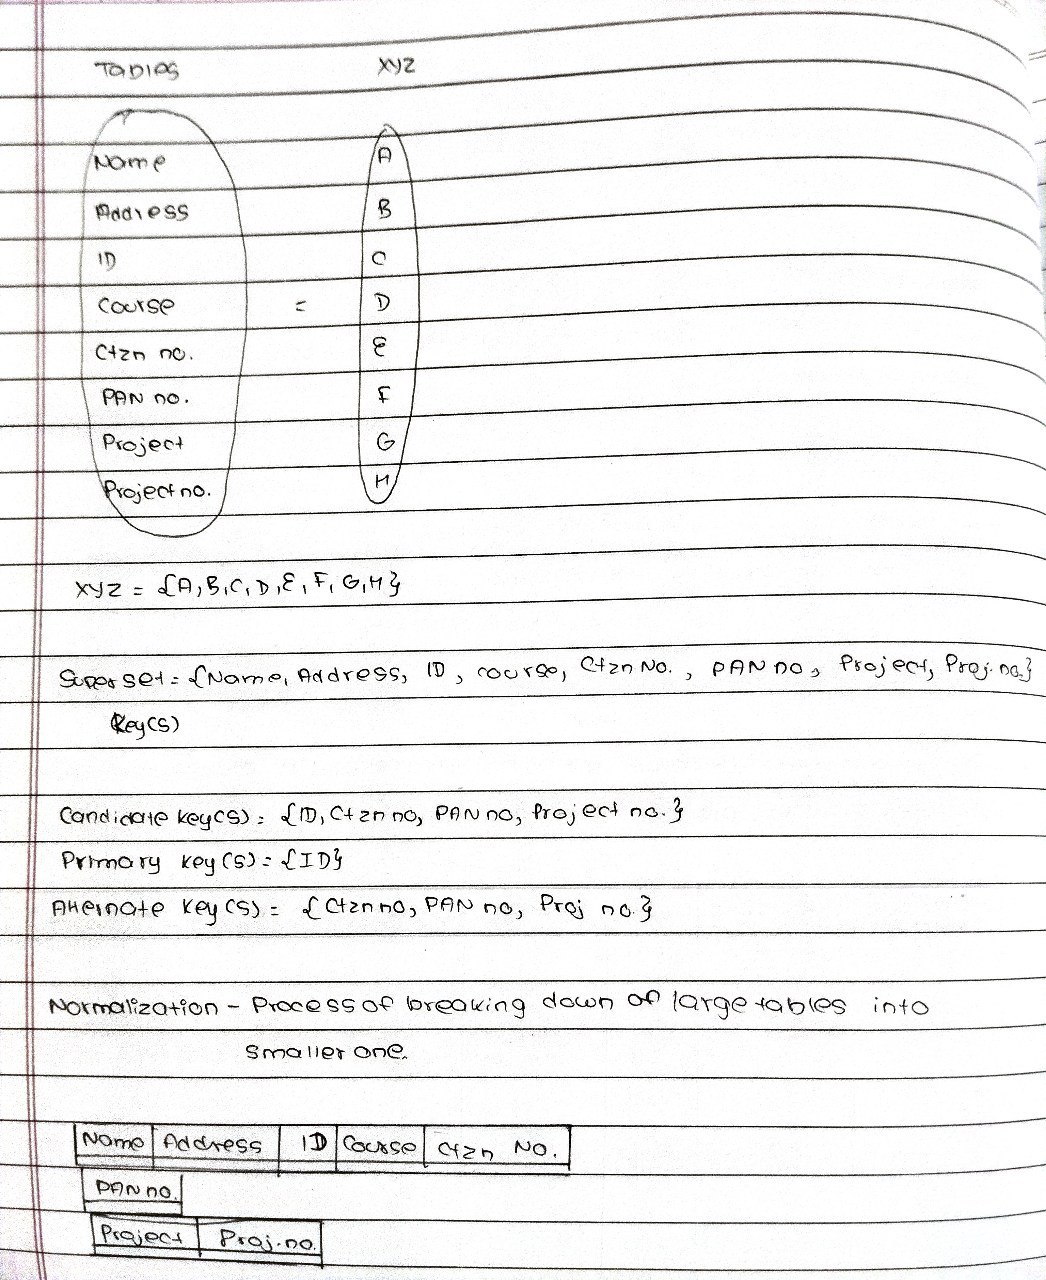 Tables XYZ
Name A
Address B
ID C
Course = D
Ctzn no. E
PAN no. F
Project G
Project no. H
XYZ = {A,B,C,D,E,F,G,H}
Superset = {Name, Address, ID, course, Ctzn No., PAN no, Project, Proj. no.}
Key(s)
Candidate key(s) = {ID, Ctzn no, PAN no, Project no.}
Primary key(s) = {ID}
Alternate key(s) = {Ctzn no, PAN no, Proj no.}
Normalization - Process of breaking down of large tables into
smaller one.
Name Address ID Course Ctzn No.
PAN no.
Project Proj. no.